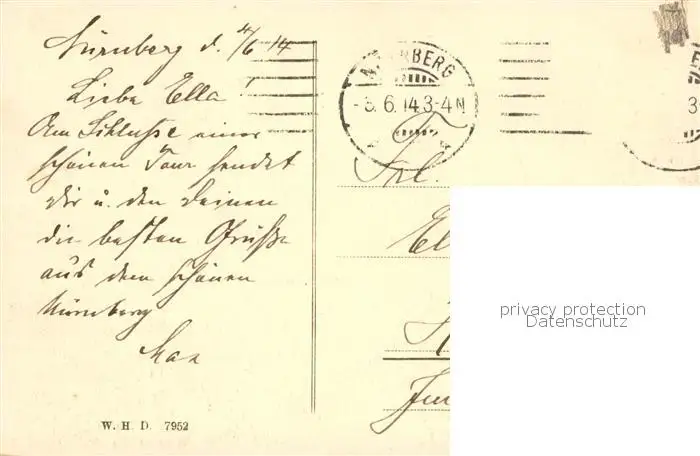 Nürnberg d. 4/6 14
Liebe Ella!
Am Schlusse einer
schönen Tour sendet
Dir u. den Deinen
die besten Grüße
aus dem schönen
Nürnberg
Max
W. H. D. 7952
NÜRNBERG
- 5. 6. 14. 3-4 N
Frl.
El
privacy protection
Datenschutz